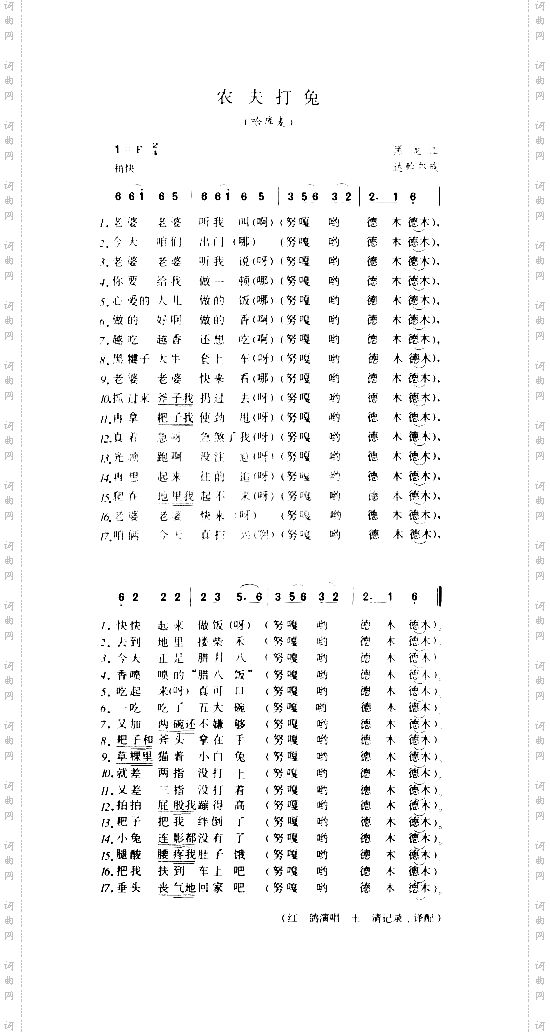 农夫打兔
(哈库麦)
1=F 2/4
稍快
6 6 1 6 5 6 6 1 6 5 3 5 6 3 2 2· 1 6
1.老婆 老婆 听我 叫(啊)(努嘎 哟 德 木 德木)，
2.今天 咱们 出门(哪) (努嘎 哟 德 木 德木)，
3.老婆 老婆 听我 说(呀)(努嘎 哟 德 木 德木)，
4.你要 给我 做一 顿(哪)(努嘎 哟 德 木 德木)，
5.心爱的 人儿 做的 饭(哪)(努嘎 哟 德 木 德木)，
6.做的 好啊 做的 香(啊)(努嘎 哟 德 木 德木)，
7.越吃 越香 还想 吃(啊)(努嘎 哟 德 木 德木)，
8.黑犍子 大牛 套上 车(呀)(努嘎 哟 德 木 德木)，
9.老婆 老婆 快来 看(哪)(努嘎 哟 德 木 德木)，
10.抓过来 斧子我 扔过 去(呀)(努嘎 哟 德 木 德木)，
11.再拿 耙子我 使劲 甩(呀)(努嘎 哟 德 木 德木)，
12.真着 急呀 急煞了我(呀)(努嘎 哟 德 木 德木)，
13.光顾 跑啊 没注 意(呀)(努嘎 哟 德 木 德木)，
14.再想 起来 往前 追(呀)(努嘎 哟 德 木 德木)，
15.爬在 地里我 起不 来(呀)(努嘎 哟 德 木 德木)，
16.老婆 老婆 快来(呀) (努嘎 哟 德 木 德木)，
17.咱俩 今日 真扫 (努嘎 哟 德 木 德木)，
6 2 2 2 2 3 5· 6 3 5 6 3 2 2· 1 6
1.快快 起来 做饭(呀) (努嘎 哟 德 木 德木)。
2.去到 地里 搂柴禾 (努嘎 哟 德 木 德木)。
3.今天 正是 腊月八 (努嘎 哟 德 木 德木)。
4.香喷 喷的“腊八饭” (努嘎 哟 德 木 德木)。
5.吃起 来(呀)真可口 (努嘎 哟 德 木 德木)。
6.一吃 吃了 五大碗 (努嘎 哟 德 木 德木)。
7.又加 两碗还不嫌够 (努嘎 哟 德 木 德木)。
8.耙子和 斧头 拿在手 (努嘎 哟 德 木 德木)。
9.草棵里 猫着 小白兔 (努嘎 哟 德 木 德木)。
10.就差 两指 没打上 (努嘎 哟 德 木 德木)。
11.又差 三指 没打着 (努嘎 哟 德 木 德木)。
12.拍拍 屁股我蹦得高 (努嘎 哟 德 木 德木)。
13.耙子 把我 绊倒了 (努嘎 哟 德 木 德木)。
14.小兔 连影都没有了 (努嘎 哟 德 木 德木)。
15.腿酸 腰疼我肚子饿 (努嘎 哟 德 木 德木)。
16.把我 扶到 车上吧 (努嘎 哟 德 木 德木)。
17.垂头 丧气地回家吧 (努嘎 哟 德 木 德木)。
(红 鸽演唱 清记录、译配)
词曲网